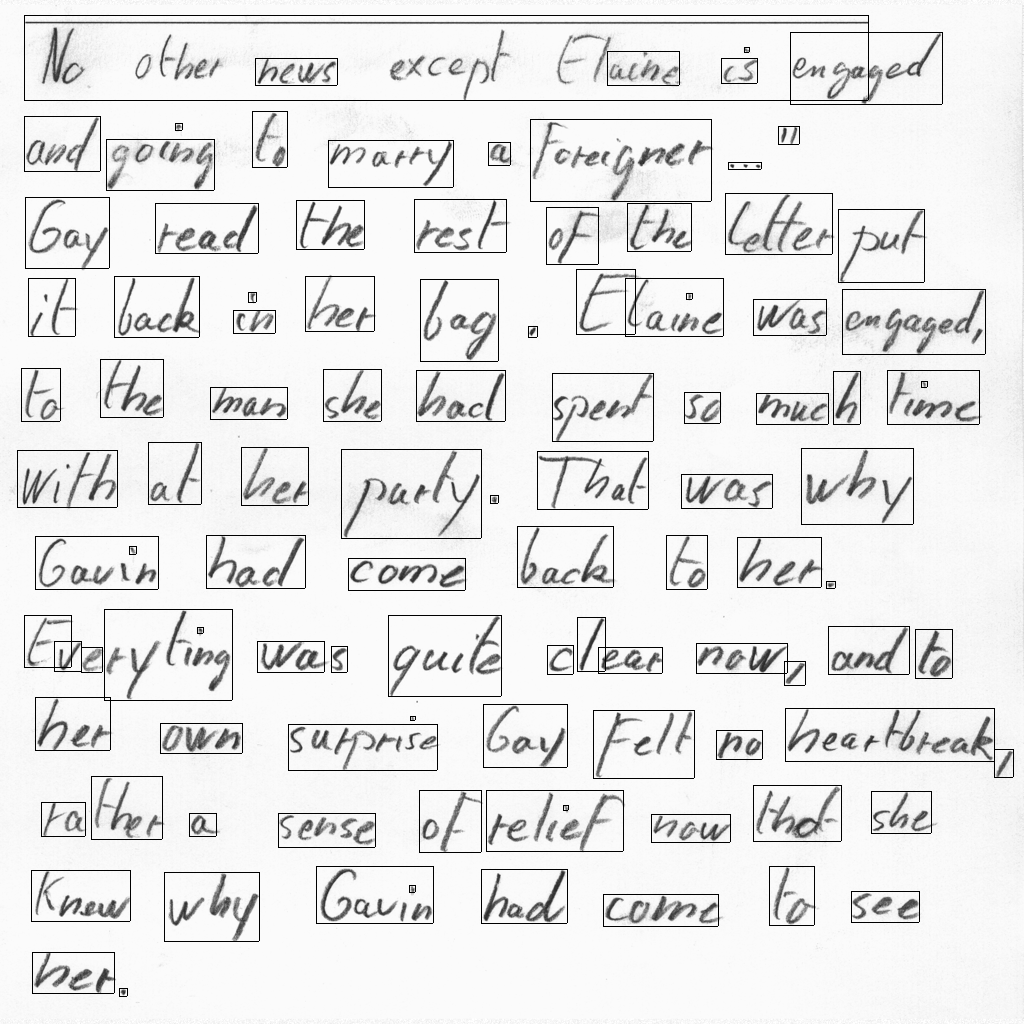 No other news except Elaine is engaged
and going to marry a Foreigner ...."
Gay read the rest of the letter put
it back in her bag. Elaine was engaged,
to the man she had spent so much time
with at her party. That was why
Gavin had come back to her.
Everyting was quite clear now, and to
her own surprise Gay Felt no heartbreak,
rather a sense of relief now that she
Knew why Gavin had come to see
her.